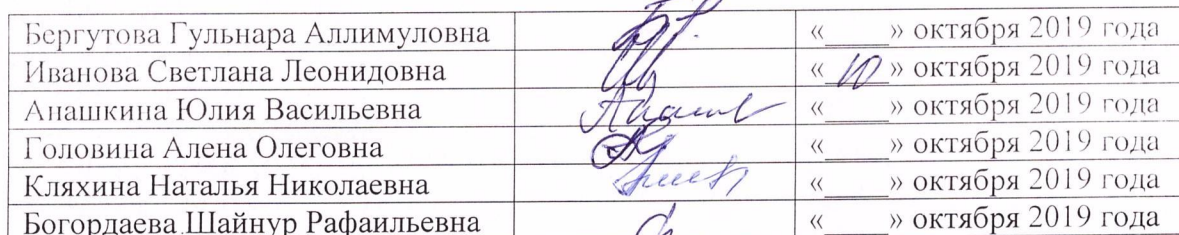 Бергутова Гульнара Аллимуловна «____» октября 2019 года
Иванова Светлана Леонидовна «_10_» октября 2019 года
Анашкина Юлия Васильевна «____» октября 2019 года
Головина Алена Олеговна «____» октября 2019 года
Кляхина Наталья Николаевна «____» октября 2019 года
Богордаева Шайнур Рафаильевна «____» октября 2019 года